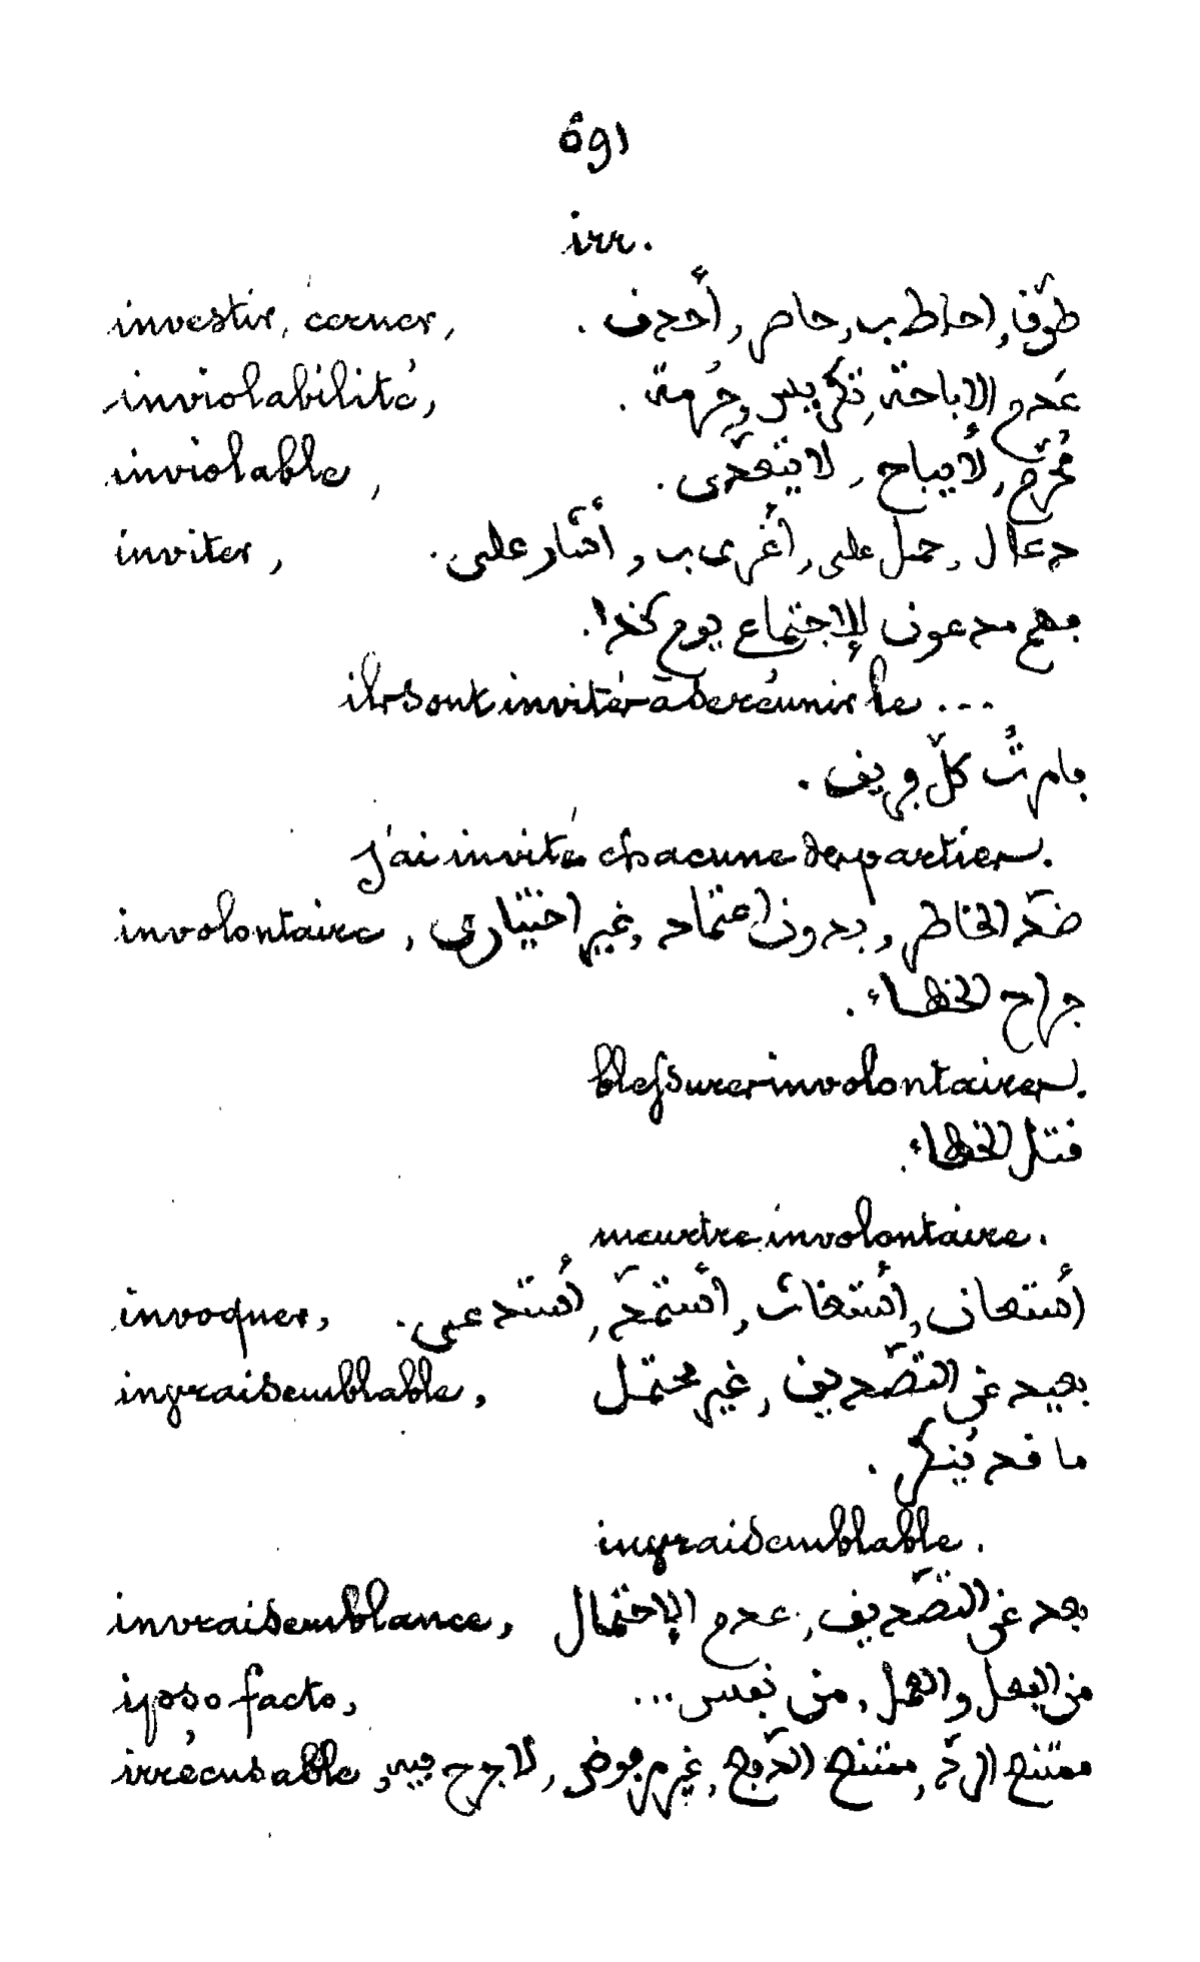 irr.
investir, cerner, طوّق, احاط ب, حاصر, أحدق .
inviolabilité, عَدم الإباحة, تكريس, حُرمة .
inviolable, مُحرّم, لا يباح, لا يتعدّى .
inviter, دعا ل, حمل على, أغرى ب, أشار على .
فهم مدعون للإجتماع يوم كذا.
ils sont invités à se réunir le ...
فامرتُ كلّ فريق .
j'ai invité chacune des parties.
involontaire, ضدّ الخاطر, بدون اعتماد, غير اختياري
جراح الخطاء .
blessures involontaires.
قتل الخطاء .
meurtre involontaire.
invoquer, أستعان, أستغاث, أستمدّ, أستدعى .
invraisemblable, بعيد عن التصّديق, غير محتمل
ما قد يُنكر .
invraisemblable.
invraisemblance, بعد عن التصّديق, عدم الإحتمال
ipso facto, من الفعل والعمل, من نفس ...
irrécusable, ممتنع الردّ, ممتنع الدّفع, غير مرفوض, لا جرح فيه